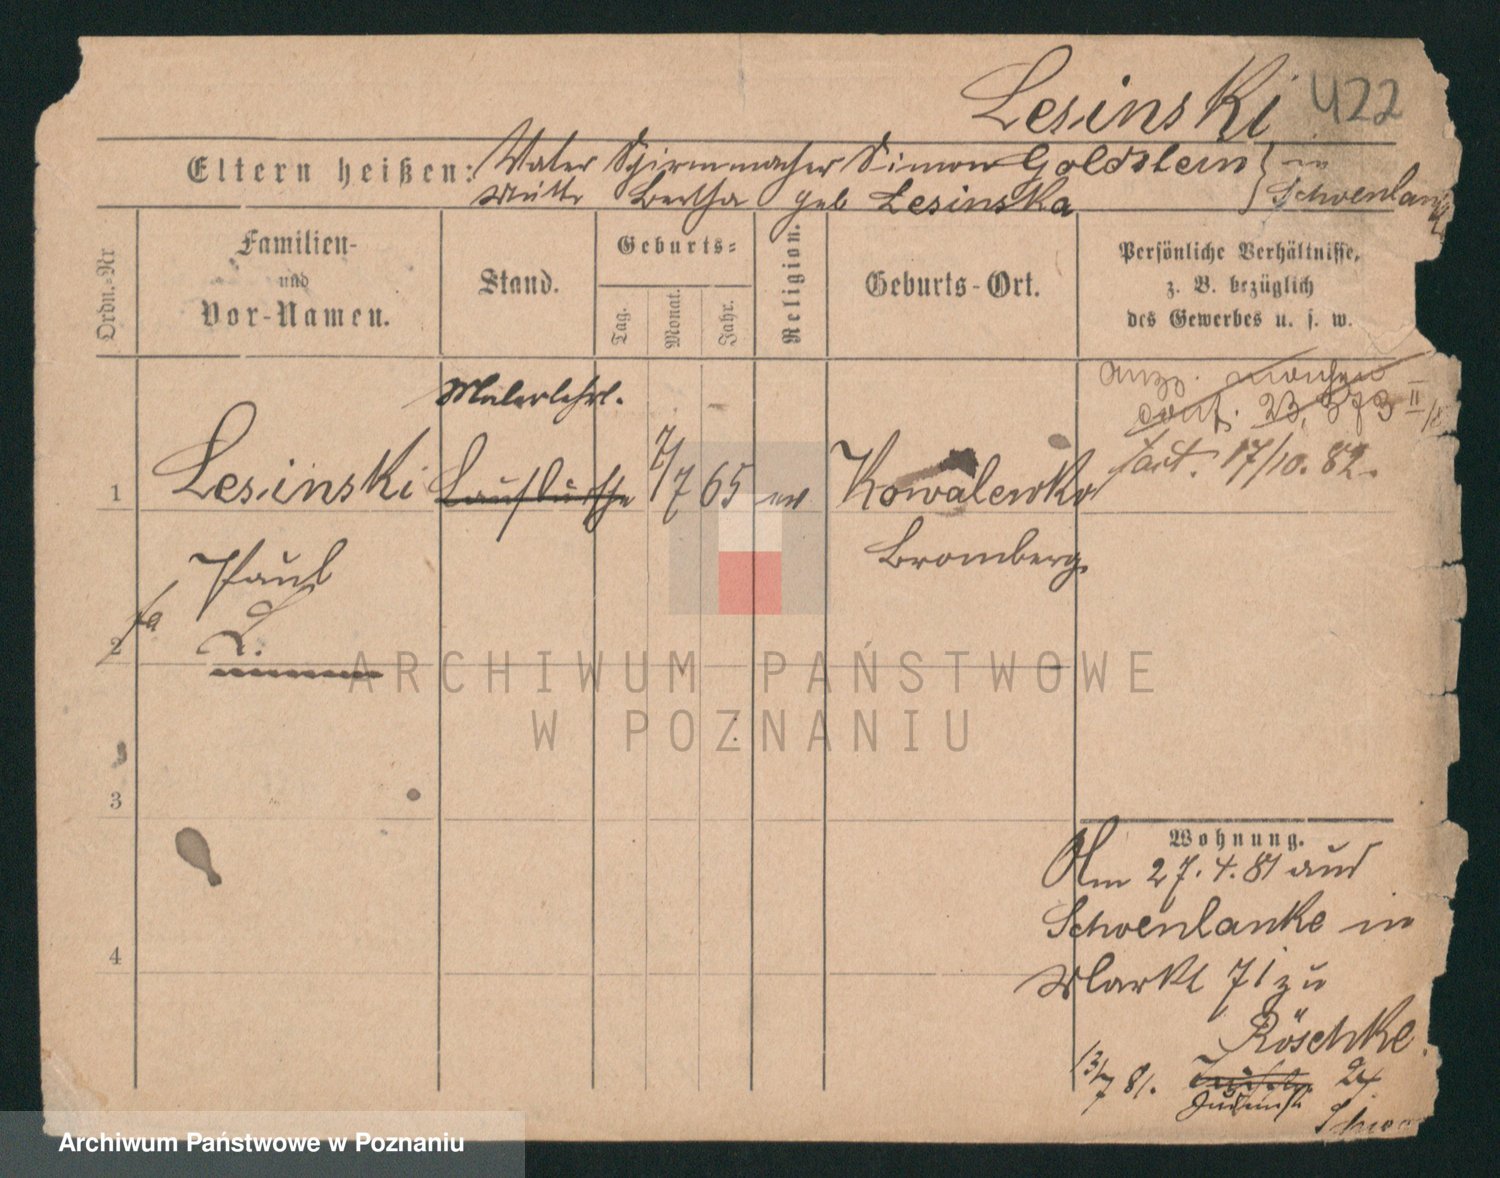 Lesinski 422
Eltern heißen: Vater Schirmmacher Simon Goldstein in
Mutter Bertha geb Lesinska Schoenlanke
Ordn.-Nr
Familien-
und
Vor-Namen.
Stand.
Geburts-
Tag.
Monat.
Jahr.
Religion.
Geburts-Ort.
Persönliche Verhältnisse,
z. B. bezüglich
des Gewerbes u. s. w.
Malerlehrl.
1 Lesinski Laufbursche 7/7 65 Kowalewko
17/10. 82.
Paul Bromberg.
2 L.
3
4
Wohnung.
Am 27. 4. 81 aus
Schoenlanke in
Markt 71 zu
Röschke.
13/7 81. 24
ARCHIWUM PAŃSTWOWE
W POZNANIU
Archiwum Państwowe w Poznaniu